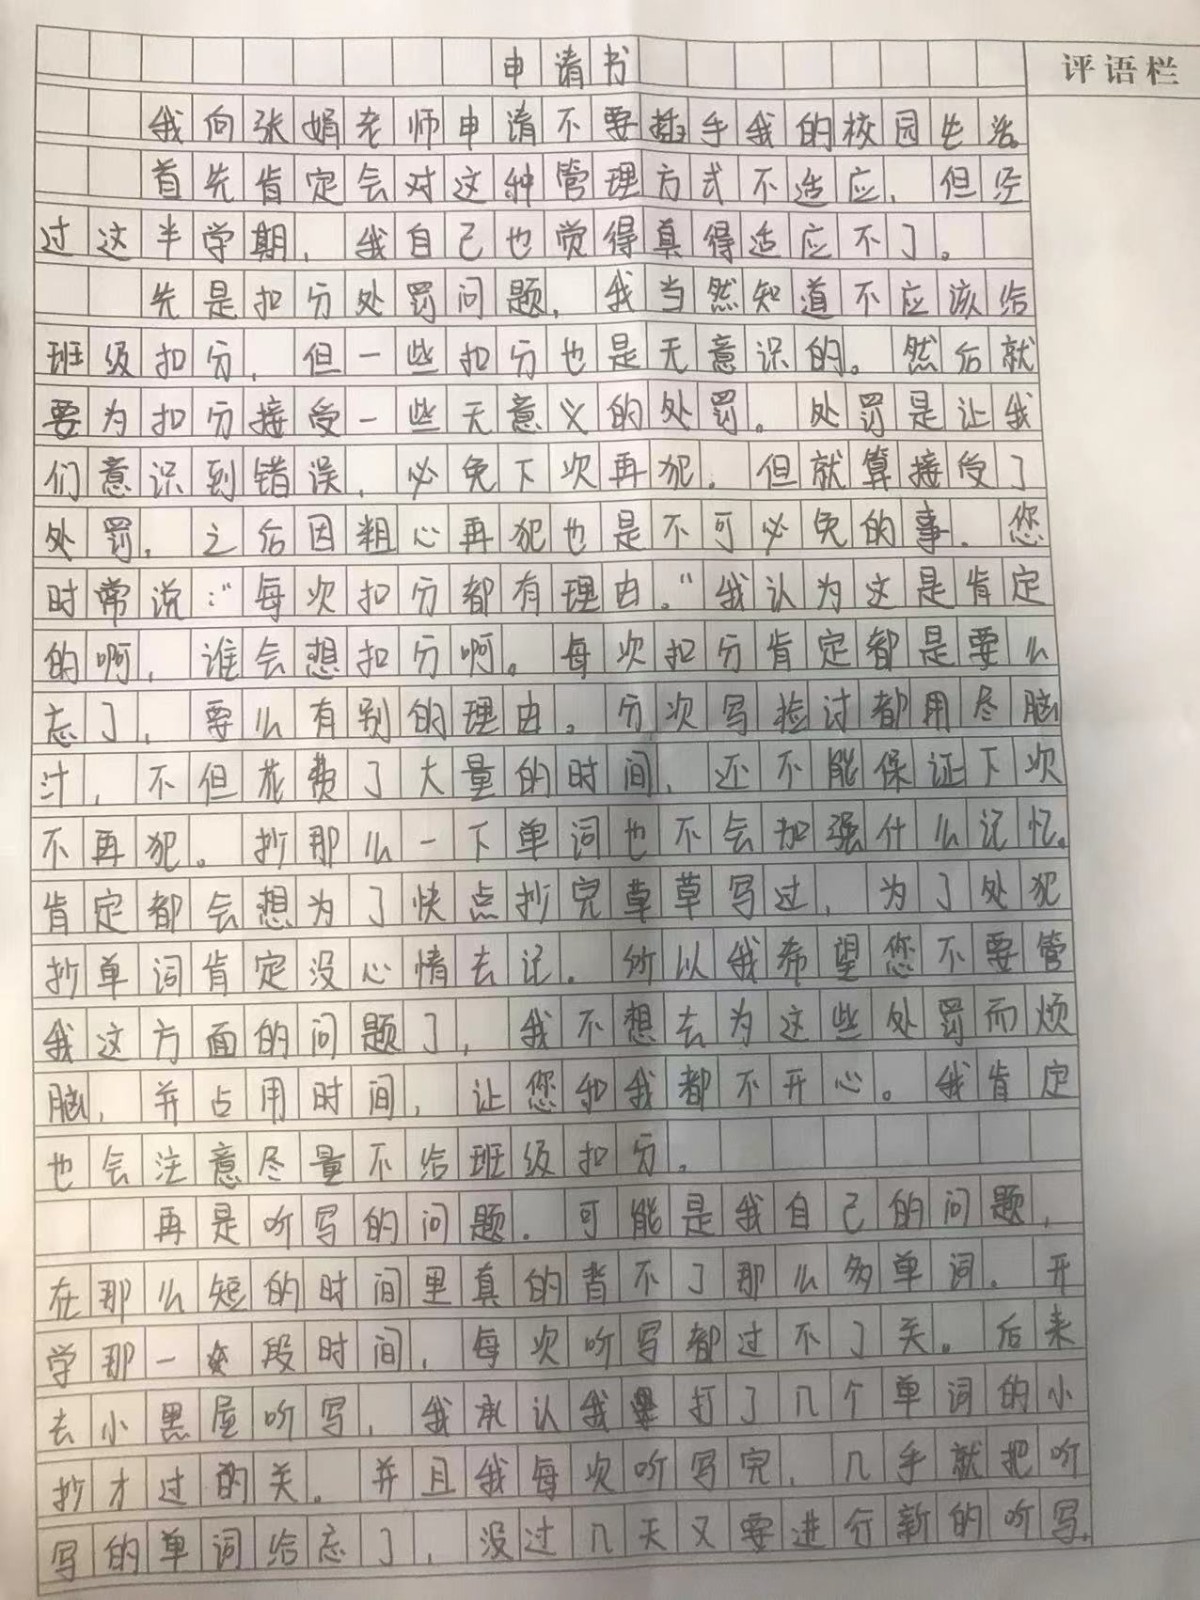 申请书
评语栏
我向张娟老师申请不要插手我的校园生活。
首先肯定会对这种管理方式不适应，但经
过这半学期，我自己也觉得真得适应不了。
先是扣分处罚问题，我当然知道不应该给
班级扣分，但一些扣分也是无意识的。然后就
要为扣分接受一些无意义的处罚。处罚是让我
们意识到错误，必免下次再犯，但就算接受了
处罚，之后因粗心再犯也是不可必免的事。您
时常说："每次扣分都有理由。"我认为这是肯定
的啊，谁会想扣分啊。每次扣分肯定都是要么
忘了，要么有别的理由。分次写检讨都用尽脑
汁，不但花费了大量的时间，还不能保证下次
不再犯。抄那么一下单词也不会加强什么记忆。
肯定都会想为了快点抄完草草写过，为了处犯
抄单词肯定没心情去记。所以我希望您不要管
我这方面的问题了，我不想去为这些处罚而烦
脑，并占用时间，让您和我都不开心。我肯定
也会注意尽量不给班级扣分。
再是听写的问题。可能是我自己的问题，
在那么短的时间里真的背不了那么多单词。开
学那一段时间，每次听写都过不了关。后来
去小黑屋听写，我承认我打了几个单词的小
抄才过的关。并且我每次听写完，几乎就把听
写的单词给忘了，没过几天又要进行新的听写。